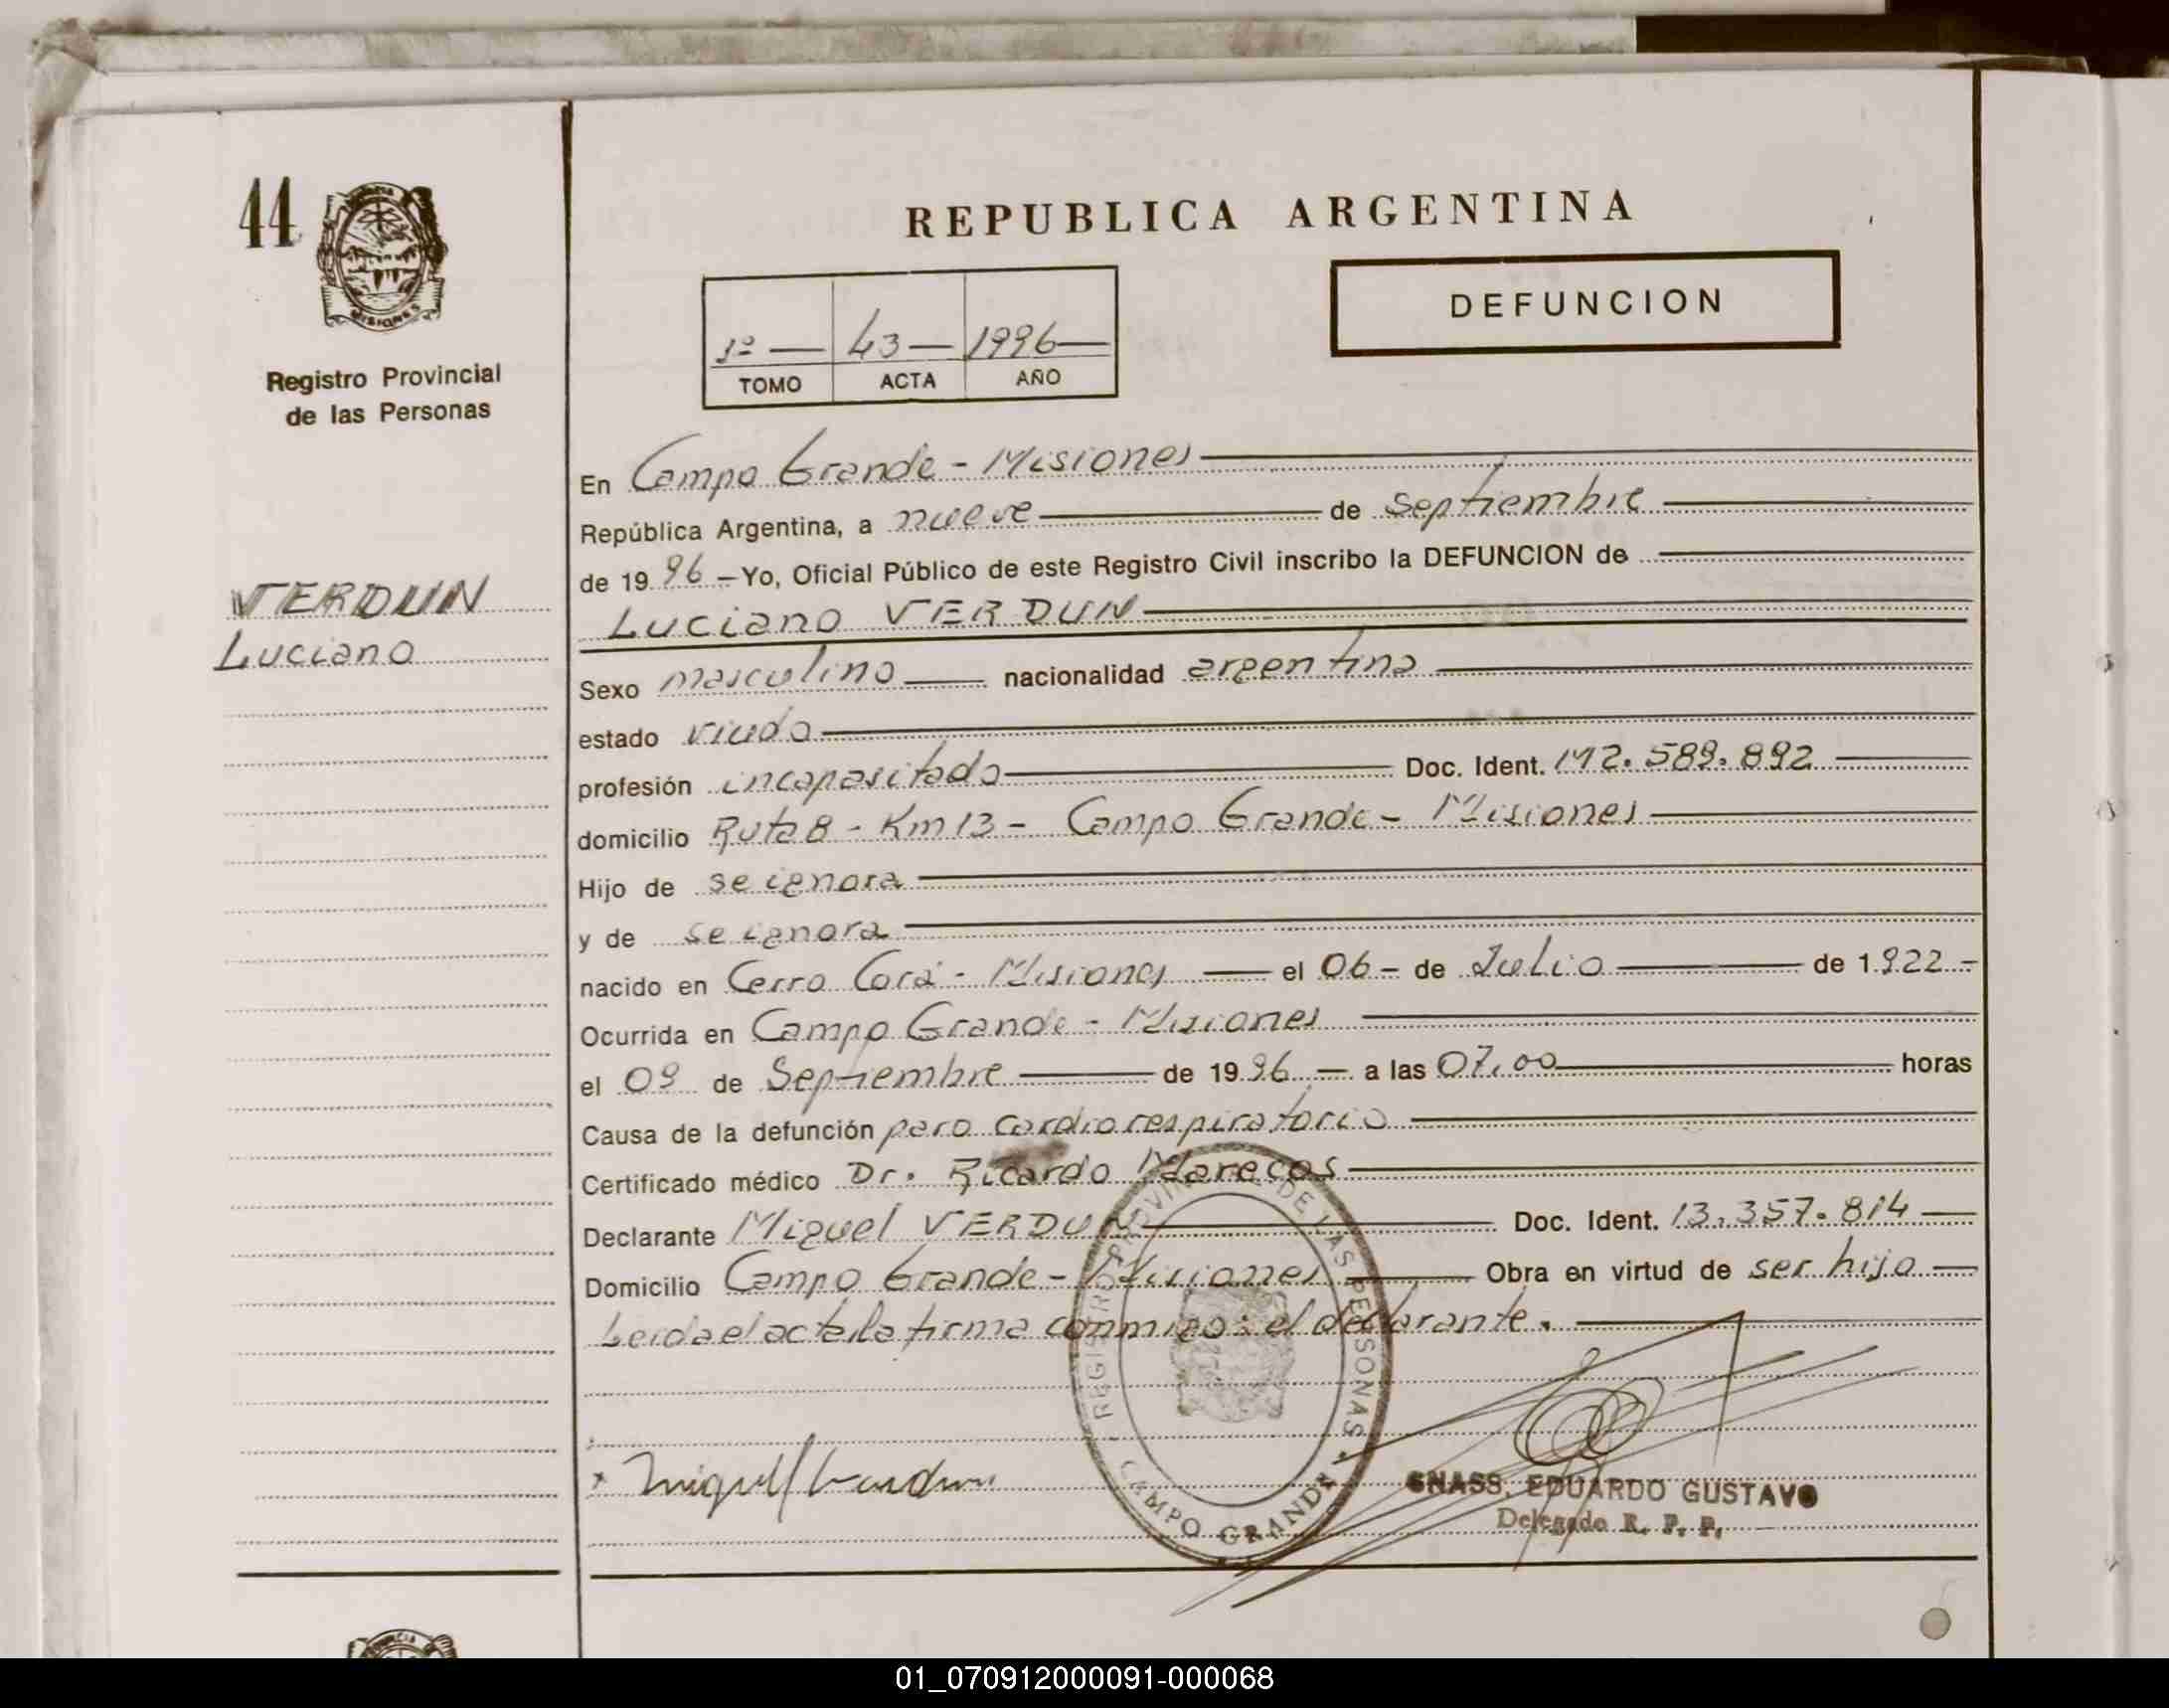 44
MISIONES
Registro Provincial
de las Personas
VERDUN
Luciano
REPUBLICA ARGENTINA
DEFUNCION
1º — 43 — 1996 —
TOMO ACTA AÑO
En Campo Grande - Misiones
República Argentina, a nueve de Septiembre
de 1996 — Yo, Oficial Público de este Registro Civil inscribo la DEFUNCION de
Luciano VERDUN
Sexo masculino nacionalidad argentina
estado viudo
profesión incapasitado Doc. Ident. M 2.589.892
domicilio Ruta 8 - Km 13 - Campo Grande - Misiones
Hijo de se ignora
y de se ignora
nacido en Cerro Corá - Misiones el 06 - de Julio de 1922 -
Ocurrida en Campo Grande - Misiones
el 09 de Septiembre de 1996 — a las 07,00 horas
Causa de la defunción paro cardiorespiratorio
Certificado médico Dr. Ricardo Marecos
Declarante Miguel VERDUN Doc. Ident. 13.357.814
Domicilio Campo Grande - Misiones Obra en virtud de ser hijo
Leida el acta, la firma conmigo: el declarante.
REGISTRO PROVINCIAL DE LAS PERSONAS
CAMPO GRANDE
Miguel Verdun
GNASS, EDUARDO GUSTAVO
Delegado R. P. P.
01_070912000091-000068